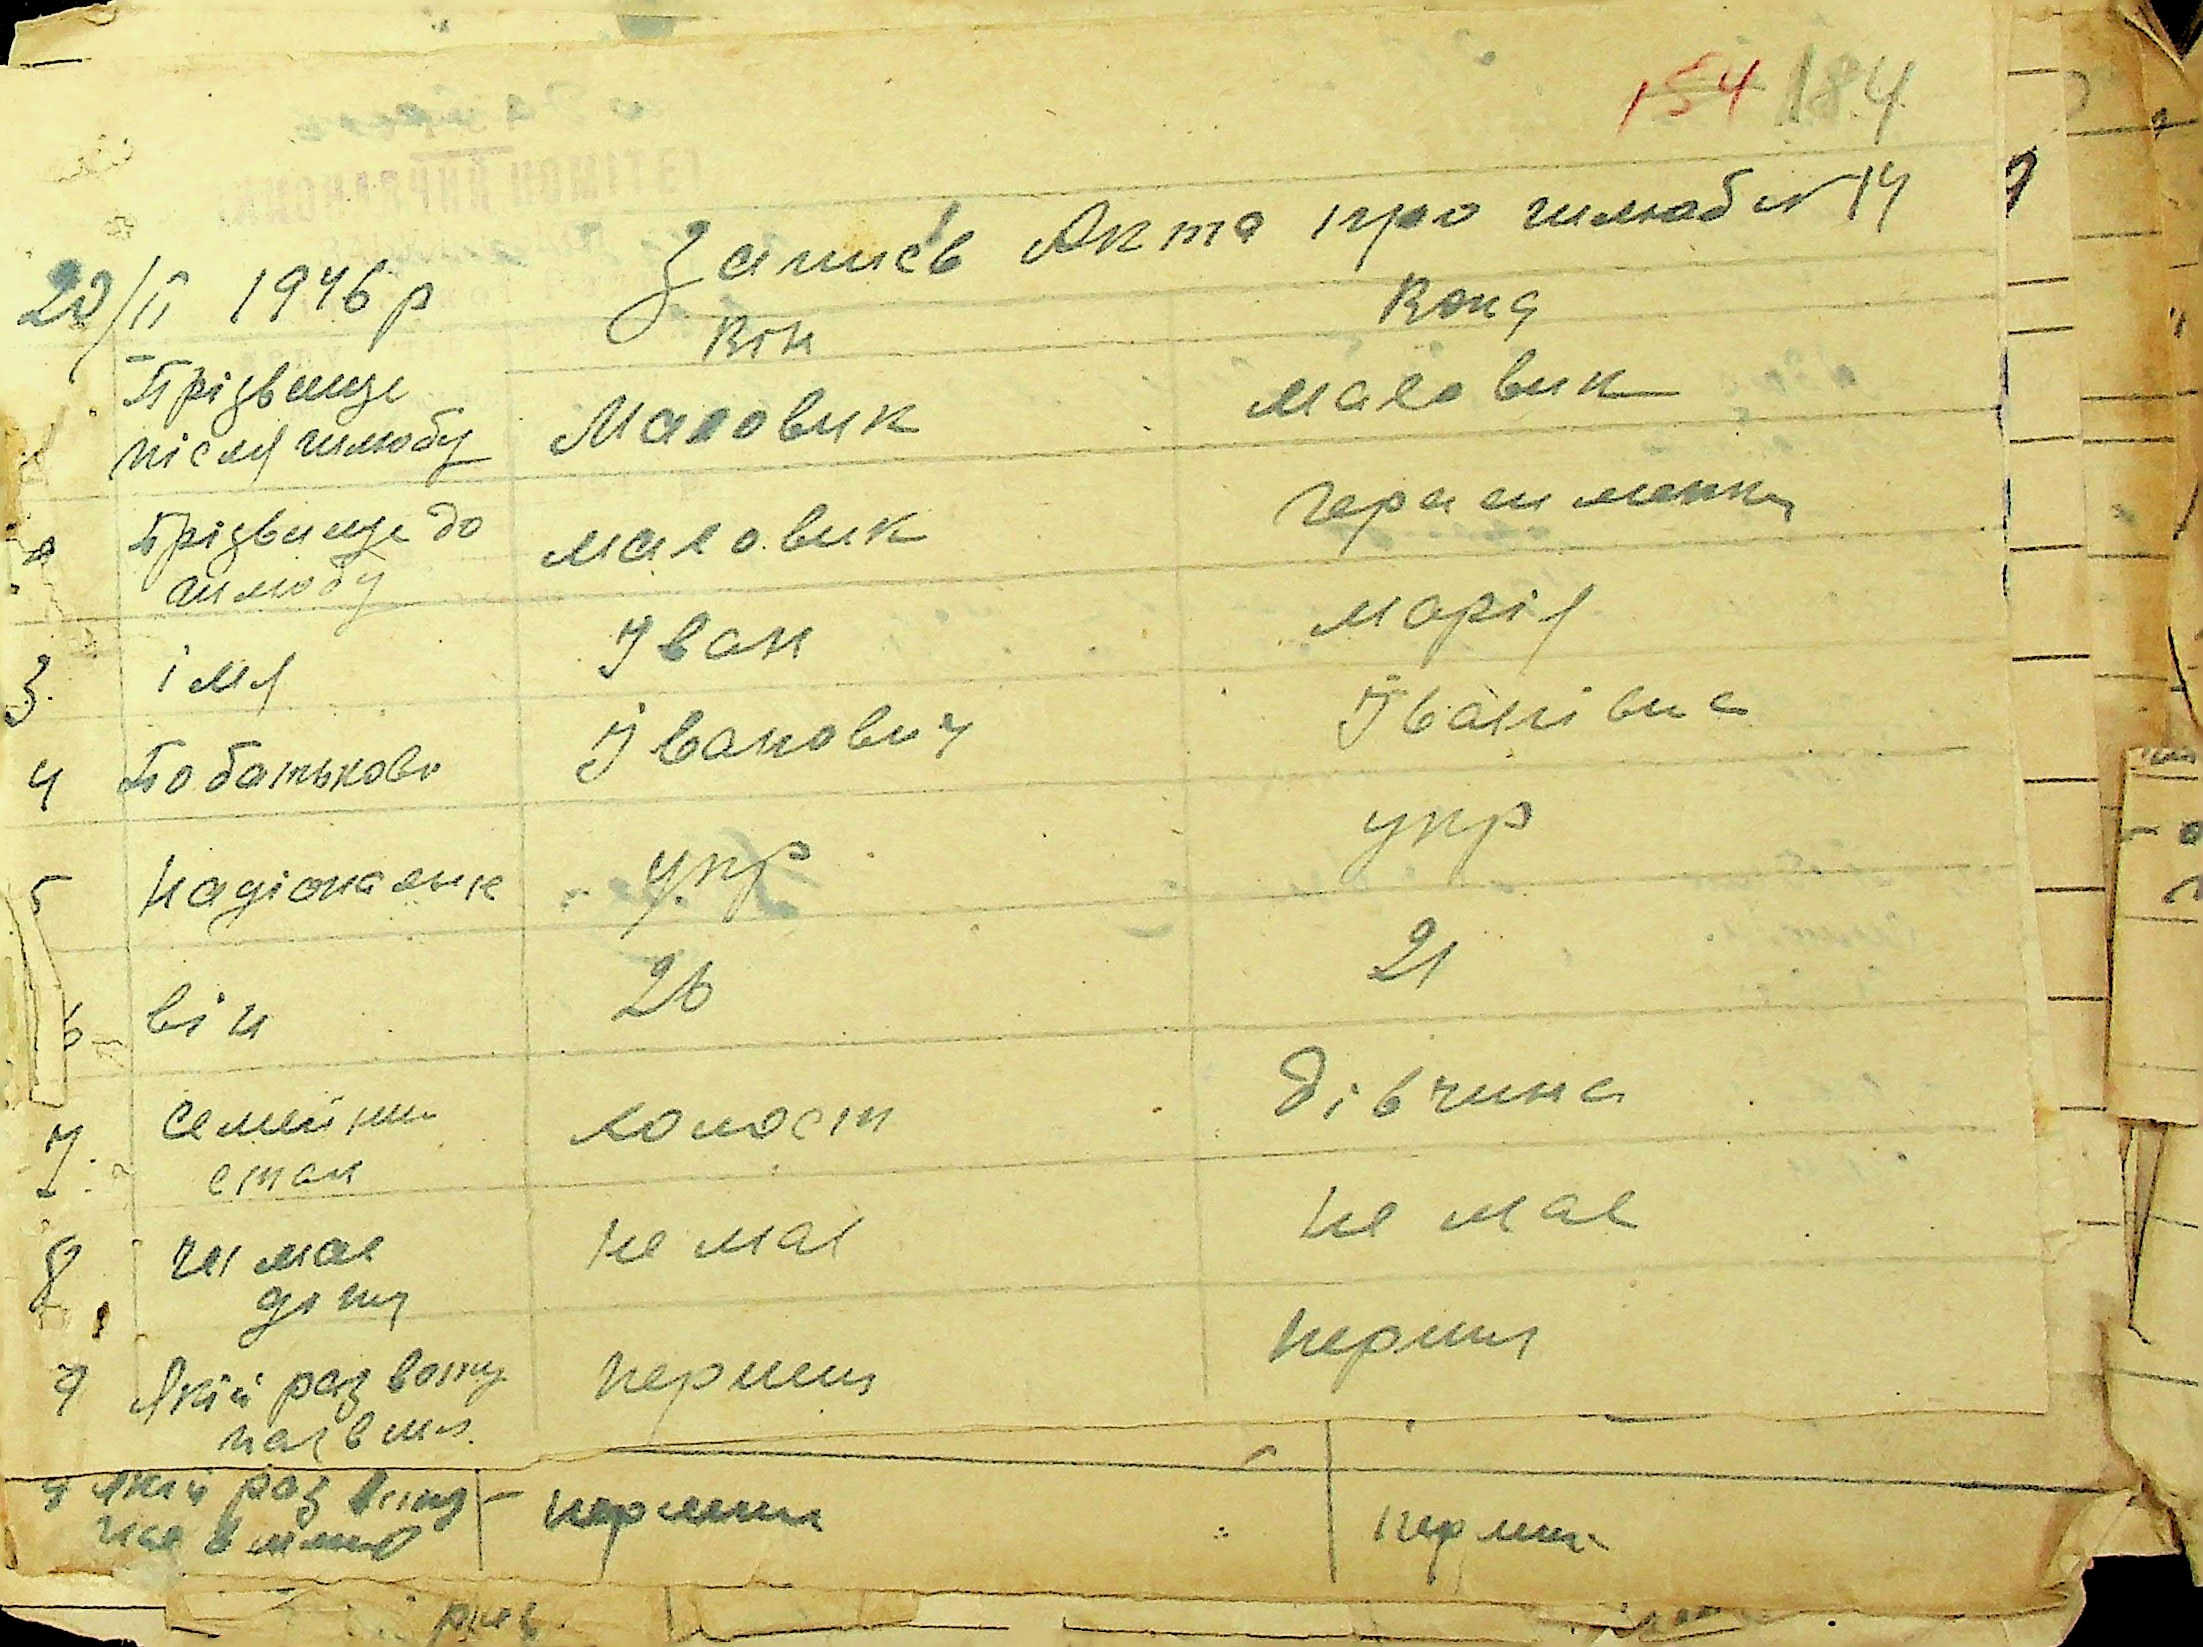 154 184
Записів Акта про шлюб № 14
20/ІІ 1946 р
Він Вона
Прізвище
після шлюбу Маловик Маловик
2 Прізвище до
шлюбу маловик герасименко
3 імя Іван марія
4 По батькові Іванович Іванівна
5 Національн укр укр
6 вік 26 21
7 Семейни
стан холост дівчина
8 чи має
діти не має не має
9 Який раз вступ
перший перший
9 який раз вступ
перший перший